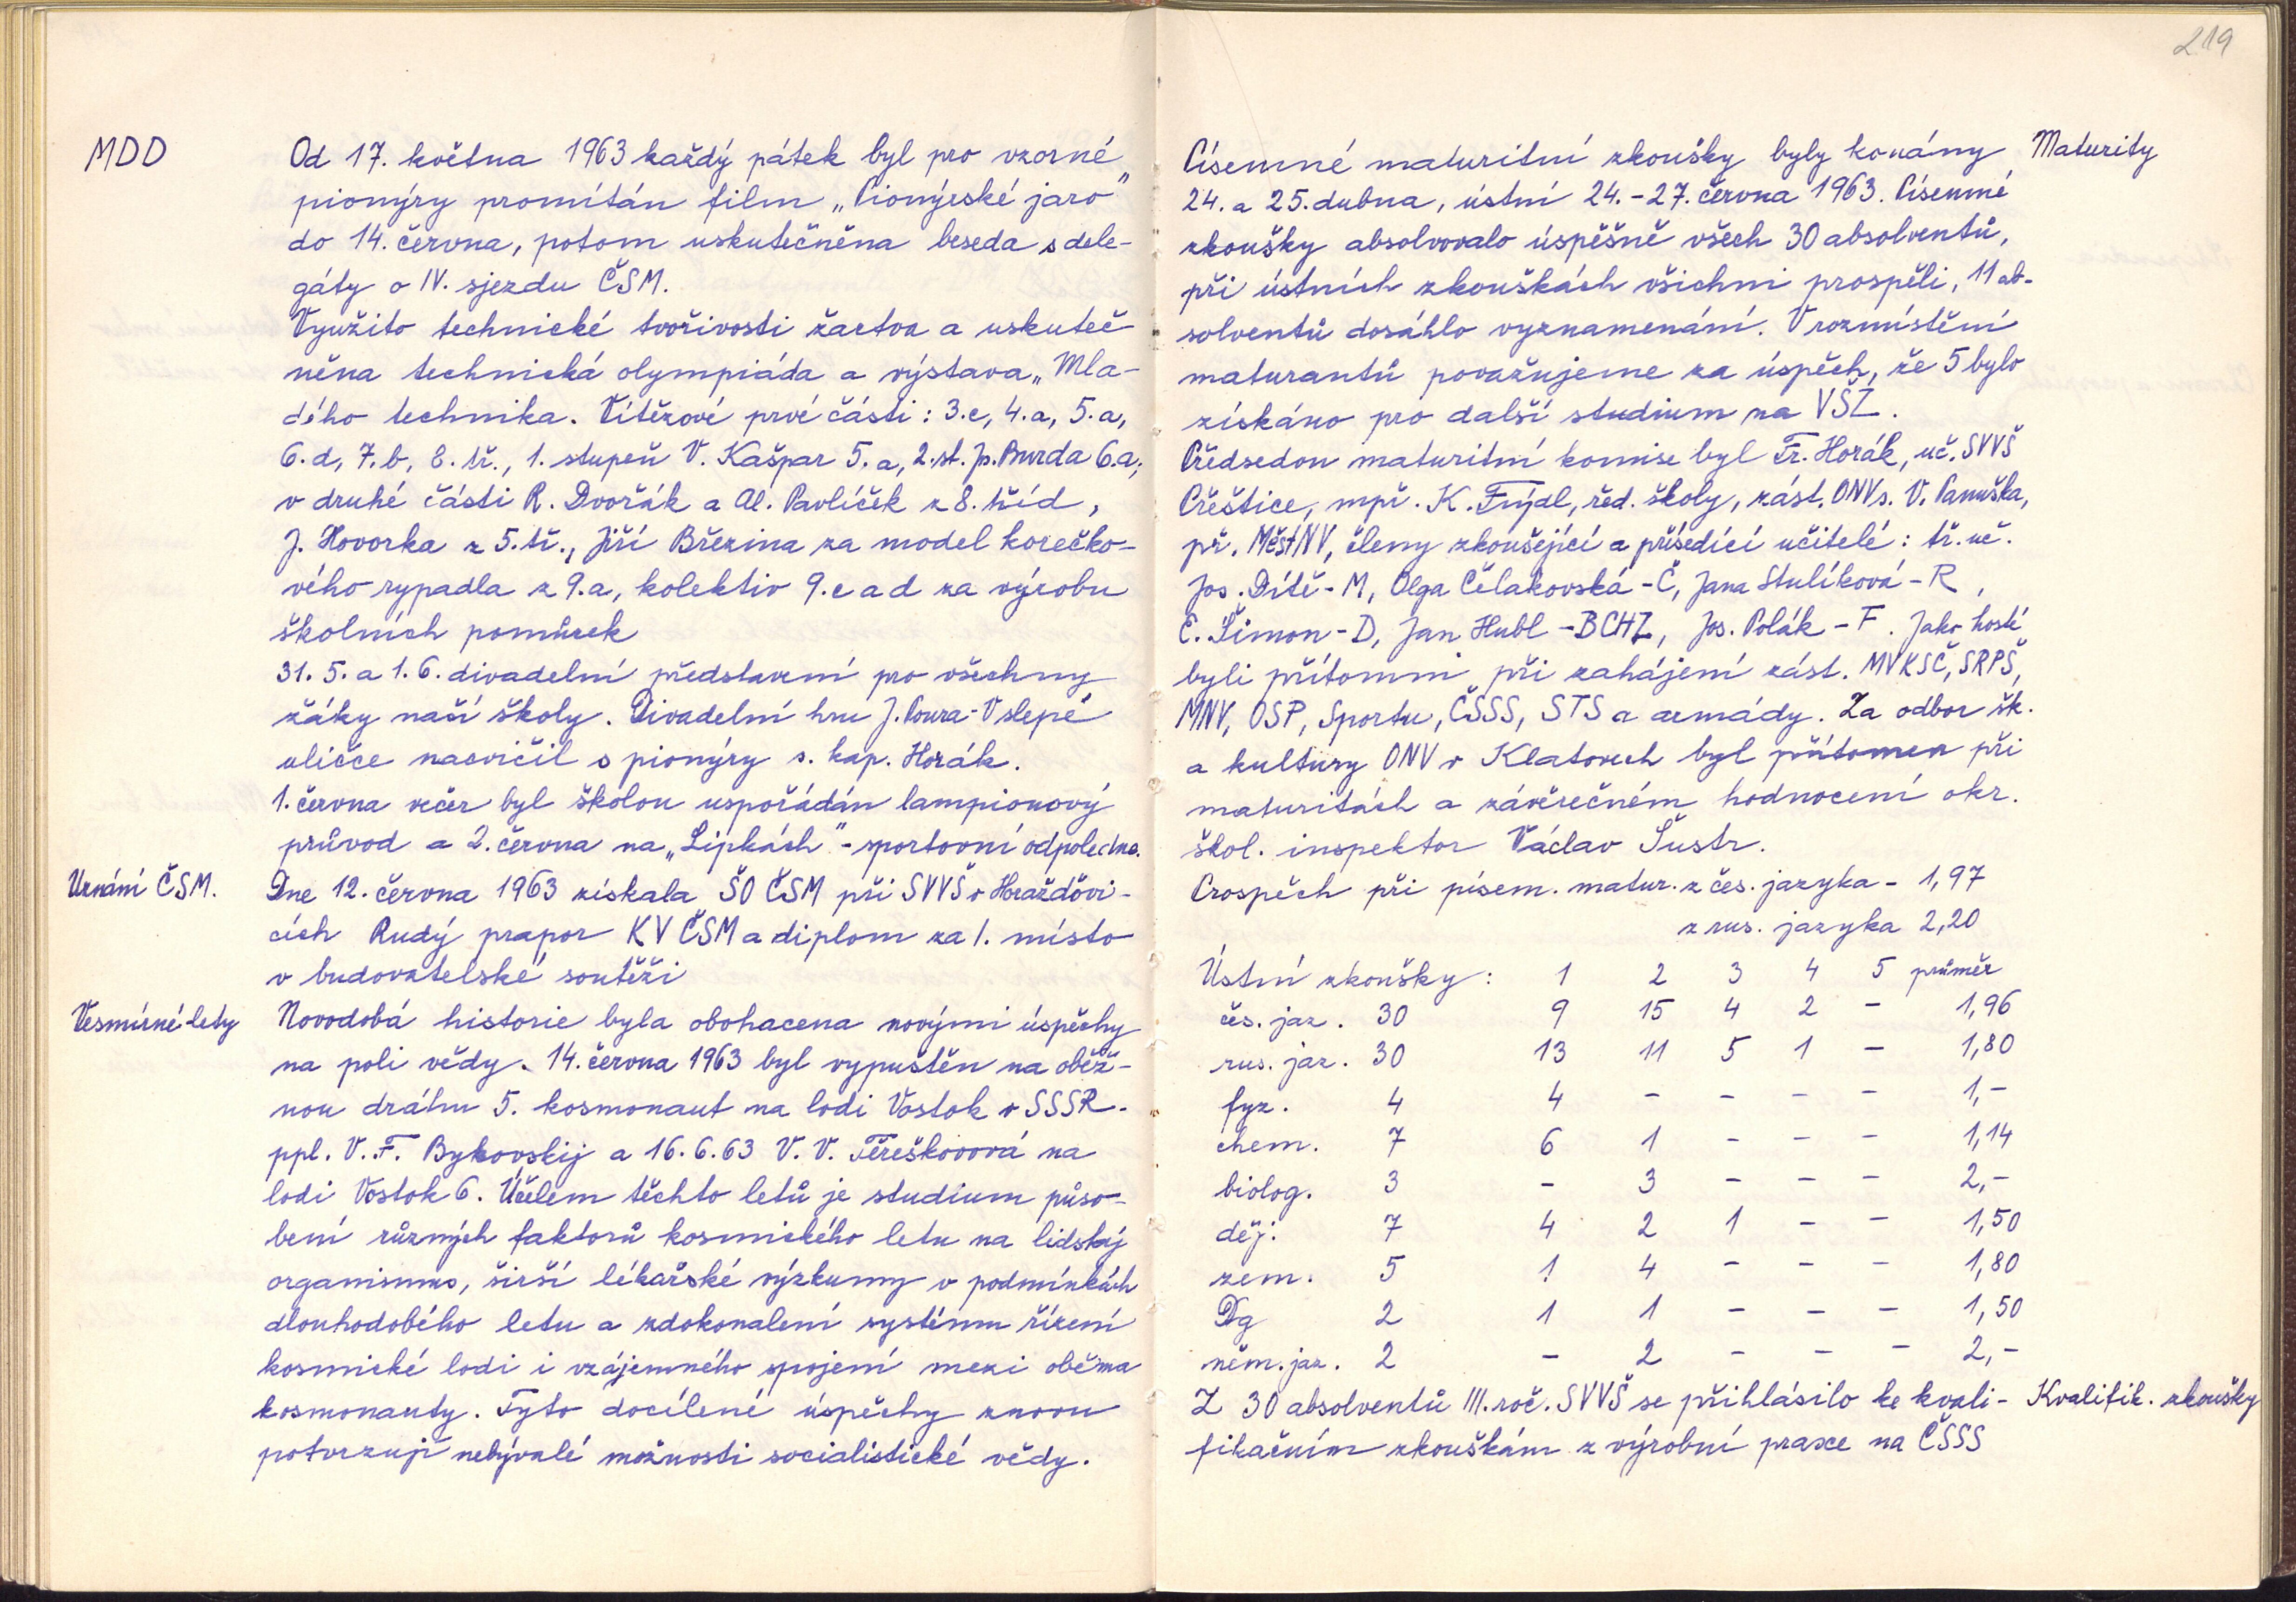 219
MDD
Od 17. května 1963 každý pátek byl pro vzorné
pionýry promítán film „Pionýrské jaro"
do 14. června, potom uskutečněna beseda s dele-
gáty o IV. sjezdu ČSM.
Využito technické tvořivosti žactva a uskuteč
něna technická olympiáda a výstava „Mla-
dého technika. Vítězové prvé části: 3.c, 4.a, 5.a,
6.d, 7.b, 8. tř., 1. stupeň V. Kašpar 5.a, 2.st. p. Burda 6.a;
v druhé části R. Dvořák a Al. Pavlíček z 8. tříd,
J. Hovorka z 5. tř., Jiří Březina za model korečko-
vého rypadla z 9.a, kolektiv 9.c a d za výrobu
školních pomůcek
31. 5. a 1. 6. divadelní představení pro všechny
žáky naší školy. Divadelní hru J. Poura - V slepé
uličce nacvičil s pionýry s. kap. Horák.
1. června večer byl školou uspořádán lampionový
průvod a 2. června na „Lipkách" - sportovní odpoledne.
Uznání ČSM.
Dne 12. června 1963 získala ŠO ČSM při SVVŠ v Horažďovi-
cích Rudý prapor KV ČSM a diplom za 1. místo
v budovatelské soutěži
Vesmírné lety
Novodobá historie byla obohacena novými úspěchy
na poli vědy. 14. června 1963 byl vypuštěn na oběž-
nou dráhu 5. kosmonaut na lodi Vostok v SSSR -
ppl. V. F. Bykovskij a 16. 6. 63 V. V. Těreškovová na
lodi Vostok 6. Účelem těchto letů je studium půso-
bení různých faktorů kosmického letu na lidský
organismus, širší lékařské výzkumy v podmínkách
dlouhodobého letu a zdokonalení systému řízení
kosmické lodi i vzájemného spojení mezi oběma
kosmonauty. Tyto docílené úspěchy znovu
potvrzují nebývalé možnosti socialistické vědy.
Maturity
Písemné maturitní zkoušky byly konány
24. a 25. dubna, ústní 24. - 27. června 1963. Písemné
zkoušky absolvovalo úspěšně všech 30 absolventů,
při ústních zkouškách všichni prospěli, 11 ab-
solventů dosáhlo vyznamenání. V rozmístění
maturantů považujeme za úspěch, že 5 bylo
získáno pro další studium na VŠZ.
Předsedou maturitní komise byl Fr. Horák, uč. SVVŠ
Přeštice, mpř. K. Frýdl, řed. školy, zást. ONV s. V. Panuška,
př. MěstNV, členy zkoušející a přísedící učitelé: tř. uč.
Jos. Dítě - M, Olga Čelakovská - Č, Jana Stulíková - R,
E. Šimon - D, Jan Hubl - BCHZ, Jos. Polák - F. Jako hosté
byli přítomni při zahájení zást. MVKSČ, SRPŠ,
MNV, OSP, Sportu, ČSSS, STS a armády. Za odbor šk.
a kultury ONV v Klatovech byl přítomen při
maturitách a závěrečném hodnocení okr.
škol. inspektor Václav Šustr.
Prospěch při písem. matur. z čes. jazyka - 1,97
z rus. jazyka 2,20
Ústní zkoušky: 1 2 3 4 5 průměr
čes. jaz. 30 9 15 4 2 - 1,96
rus. jaz. 30 13 11 5 1 - 1,80
fyz. 4 4 - - - - 1,-
chem. 7 6 1 - - - 1,14
biolog. 3 - 3 - - - 2,-
děj. 7 4 2 1 - - 1,50
zem. 5 1 4 - - - 1,80
Dg 2 1 1 - - - 1,50
něm. jaz. 2 - 2 - - - 2,-
Z 30 absolventů III. roč. SVVŠ se přihlásilo ke kvali-
Kvalifik. zkoušky
fikačním zkouškám z výrobní praxe na ČSSS